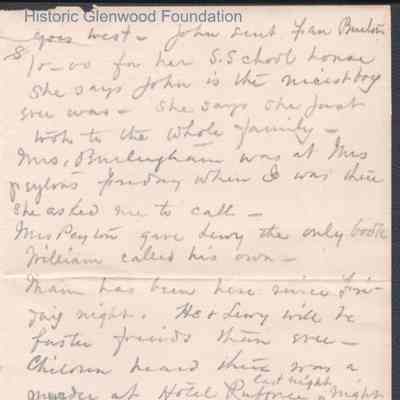 Historic Glenwood Foundation
goes west – John sent Fran Burlets
$10.00 for her S. School house
She says John is the nicest boy
ever was – She says she just
took to the whole family –
Mrs. Burlingham was at Mrs
Peytons Sunday when I was there
She asked me to call –
Mrs Peyton gave Lewy the only book
William called his own –
Mam has been here since Fri-
day night. He & Lewy will be
faster friends than ever –
Children heard there was a
last night
murder at Hotel night